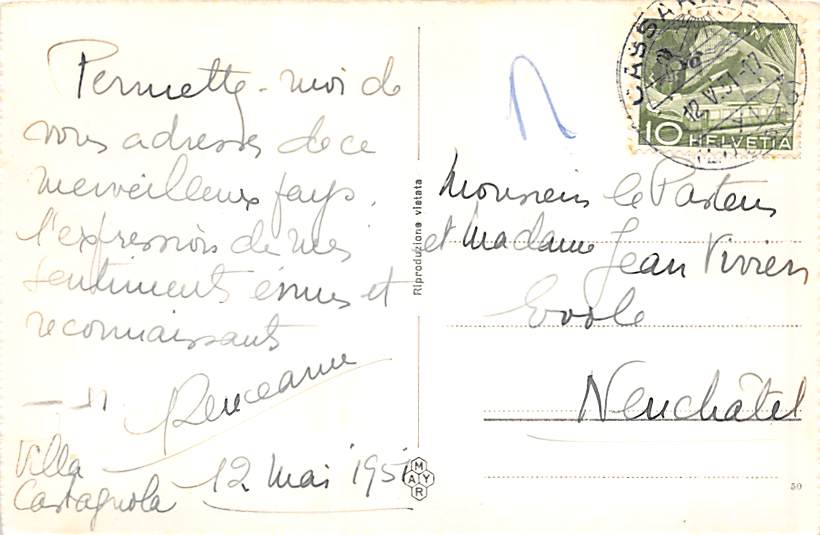 Permettez-moi de
vous adresser de ce
merveilleux pays,
l'expression de mes
sentiments émus et
reconnaissants
Villa
Castagnola
12 mai 1951
Riproduzione vietata
MAYR
CASSARATE
12.V.51-17
10 HELVETIA
Monsieur le Pasteur
et Madame
Jean Vivien
Evole
Neuchâtel
50